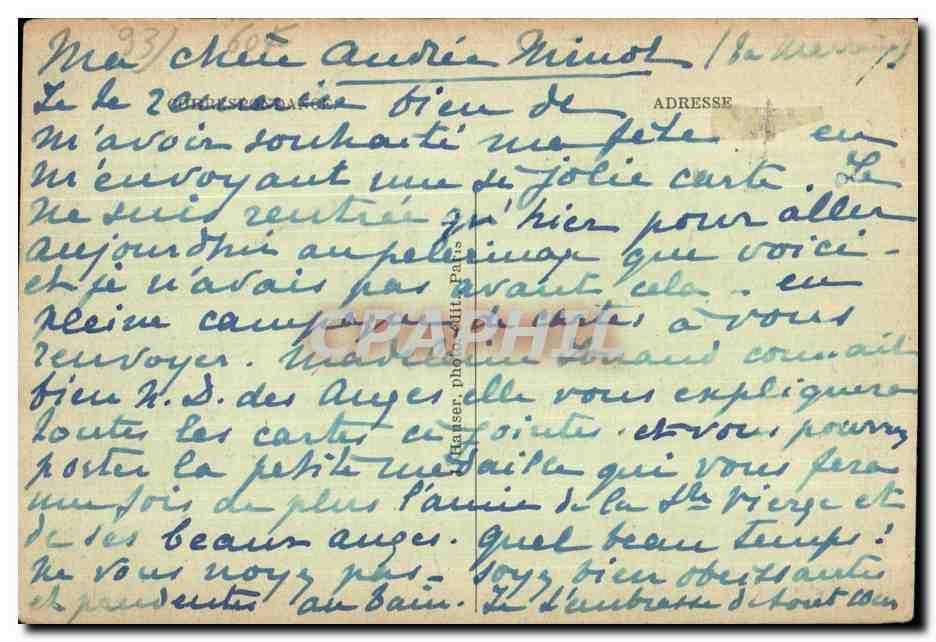 93) 607
Ma chère Andrée Minot
CORRESPONDANCE
ADRESSE
Je te remercie bien de
m'avoir souhaité ma fête en
m'envoyant une si jolie carte. Je
ne suis rentrée qu'hier pour aller
aujourdhui au pelerinage que voici -
et je n'avais pas avant cela - en
pleine campagne de cartes à vous
renvoyer. Madeleine connait
bien N. D. des Anges elle vous expliquera
toutes les cartes ci jointes. et vous pourrez
porter la petite medaille qui vous fera
une fois de plus l'amie de la Ste Vierge et
de ses beaux anges. quel beau temps!
ne vous noyez pas - soyez bien obeissantes
et prudentes au bain. Je t'embrasse de tout coeur
Hauser, photo. édit. Paris
CPAPHIL